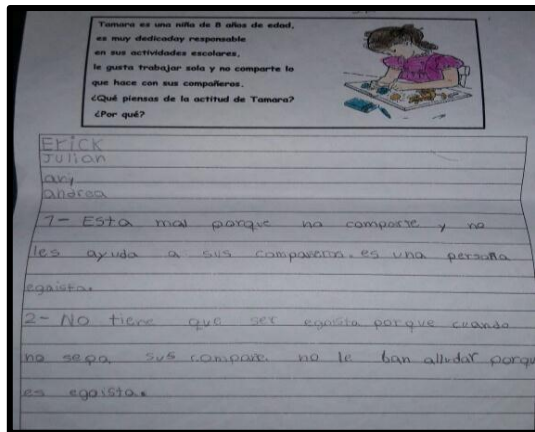 Tamara es una niña de 8 años de edad,
es muy dedicaday responsable
en sus actividades escolares,
le gusta trabajar sola y no comparte lo
que hace con sus compañeros.
¿Qué piensas de la actitud de Tamara?
¿Por qué?
Erick
Julian
ary
andrea
1- Esta mal porque no comparte y no
les ayuda a sus compañeros. es una persona
egoista.
2- No tiene que ser egoista porque cuando
no sepa sus compañe. no le ban alludar porqu
es egoista.